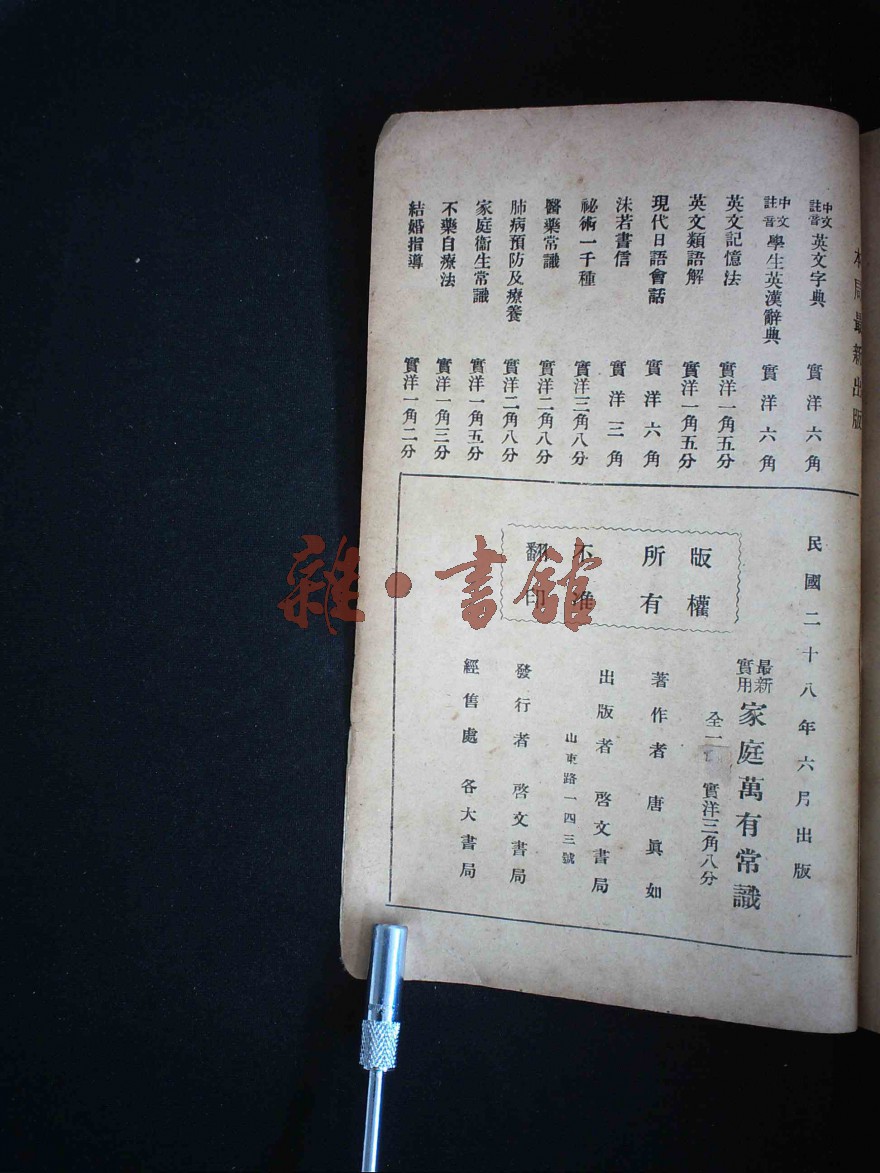 本局最新出版
中文註音 英文字典 實洋六角
中文註音 學生英漢辭典 實洋六角
英文記憶法 實洋一角五分
英文類語解 實洋一角五分
現代日語會話 實洋六角
沫若書信 實洋三角
祕術一千種 實洋三角八分
醫藥常識 實洋二角八分
肺病預防及療養 實洋二角八分
家庭衞生常識 實洋一角五分
不藥自療法 實洋一角三分
結婚指導 實洋一角二分
版權
所有
不准
翻印
民國二十八年六月出版
最新實用 家庭萬有常識
全一 實洋三角八分
著作者 唐眞如
出版者 啓文書局
山東路一四三號
發行者 啓文書局
經售處 各大書局
雜·書館